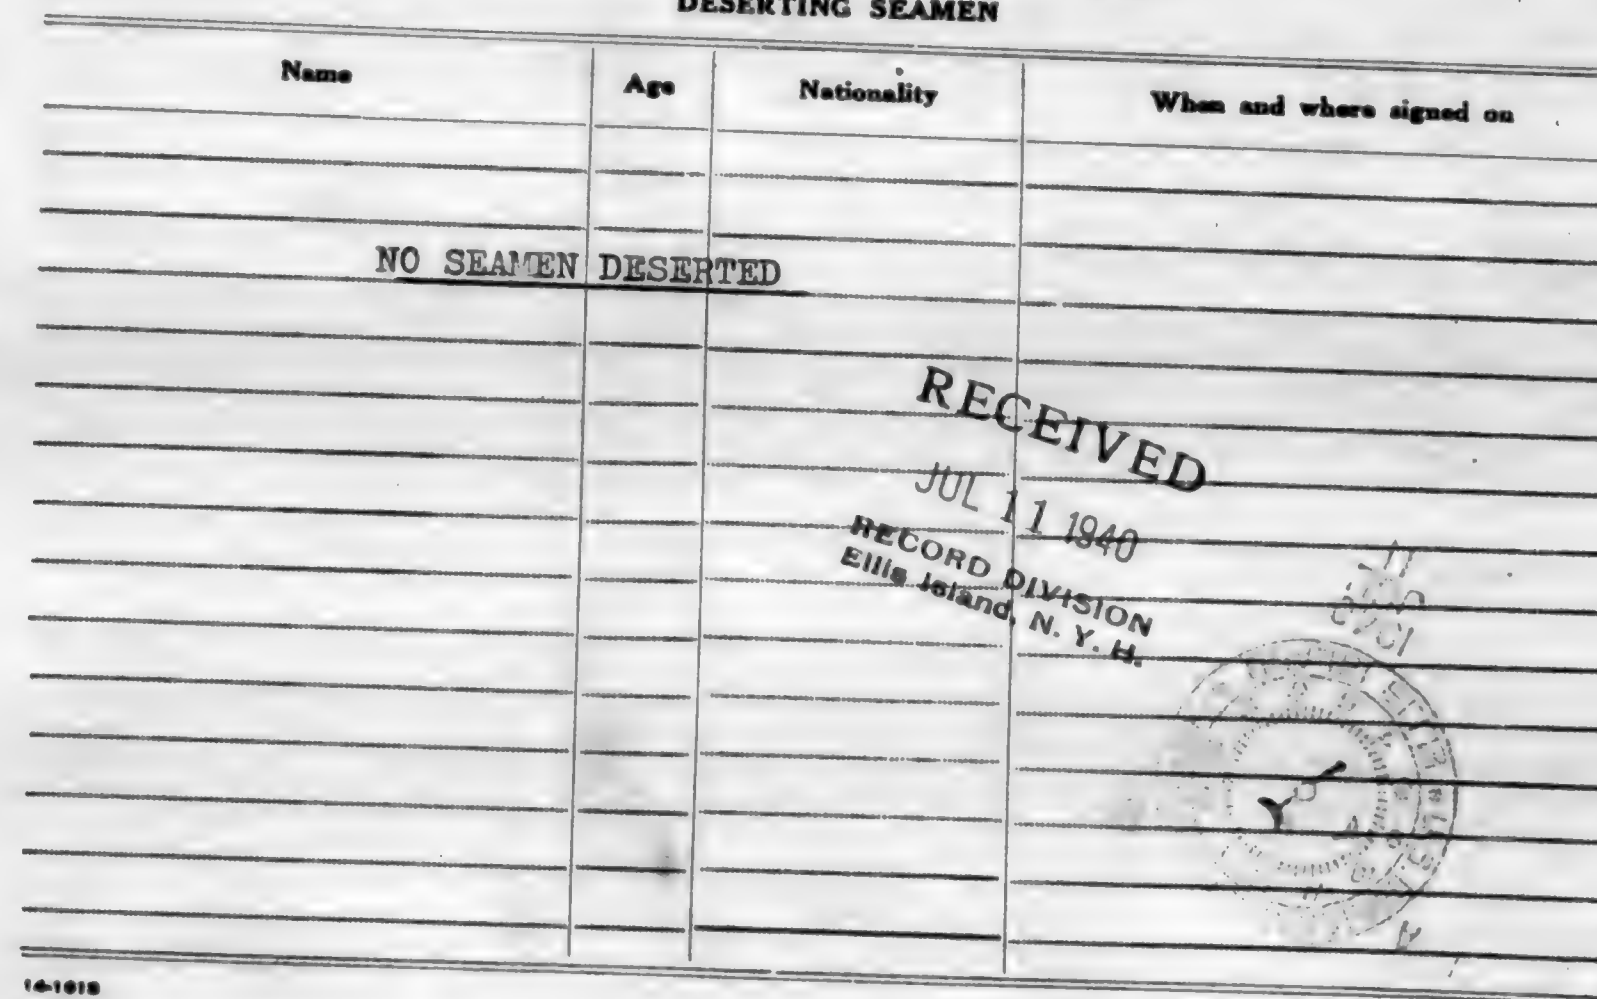 DESERTING SEAMEN
Name Age Nationality When and where signed on
NO SEAMEN DESERTED
RECEIVED
JUL 11 1940
RECORD DIVISION
Ellis Island, N. Y. H.